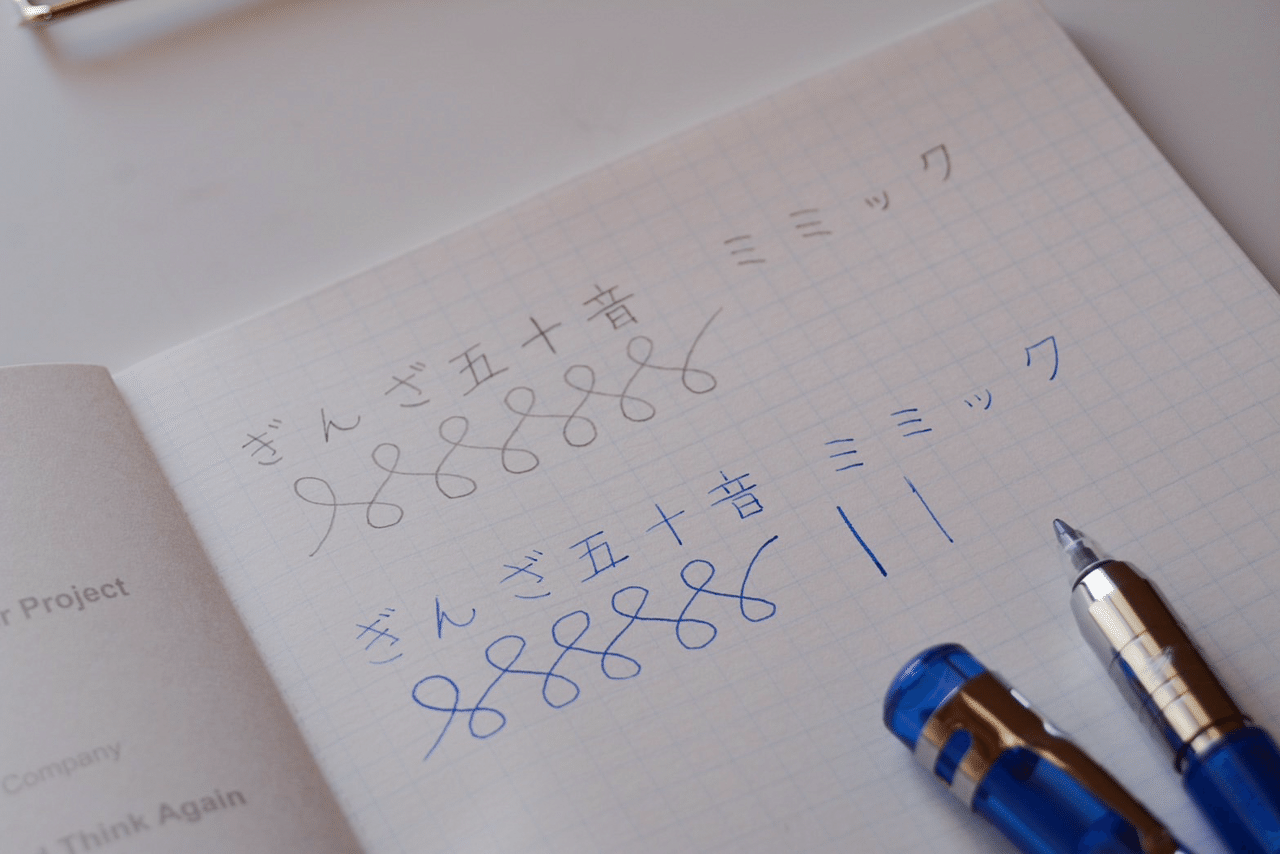 ぎんざ五十音 ミミック
ぎんざ五十音 ミミック
r Project
Company
Think Again